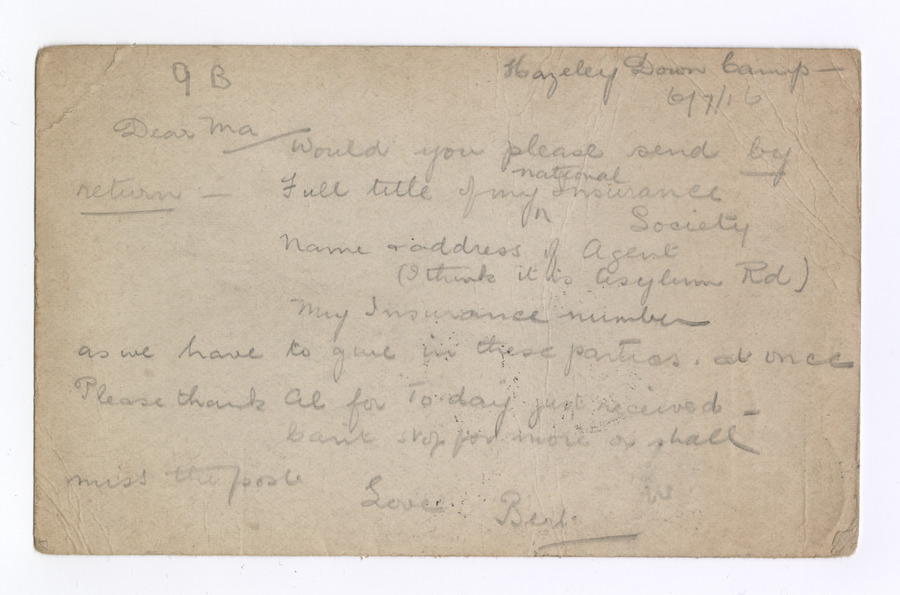 9 B
Hazeley Down Camp —
6/7/16
Dear Ma
Would you please send by
return — Full title of my national Insurance
Society
Name & address of Agent
(I think it is Asylum Rd)
My Insurance number
as we have to give in these parties. at once
Please thank Al for To day just received —
Can't stop for more or shall
miss the post
Love Bert.